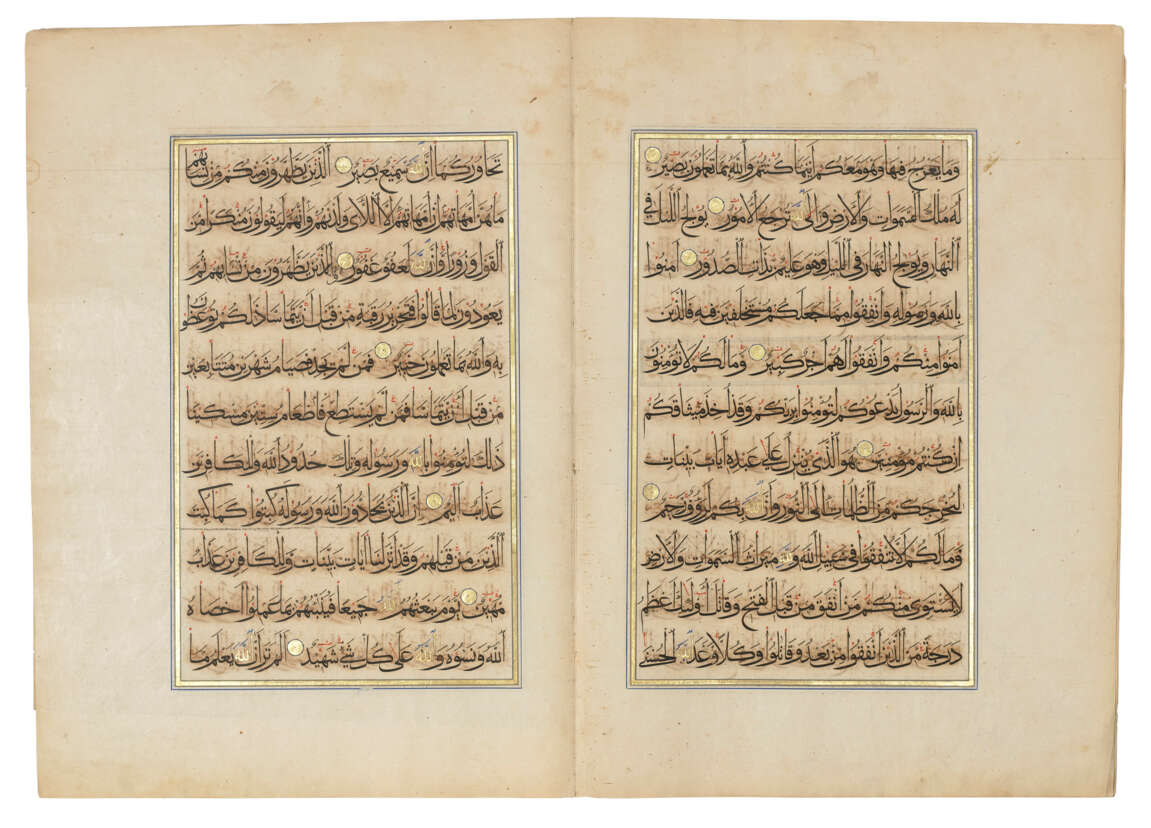 وما يعرج فيها وهو معكم أينما كنتم والله بما تعملون بصير
له ملك السموات والأرض وإلى الله ترجع الأمور يولج الليل في
النهار ويولج النهار في الليل وهو عليم بذات الصدور آمنوا
بالله ورسوله وأنفقوا مما جعلكم مستخلفين فيه فالذين
آمنوا منكم وأنفقوا لهم أجر كبير وما لكم لا تؤمنون
بالله والرسول يدعوكم لتؤمنوا بربكم وقد أخذ ميثاقكم
إن كنتم مؤمنين هو الذي ينزل على عبده آيات بينات
ليخرجكم من الظلمات إلى النور وإن الله بكم لرؤف رحيم
وما لكم ألا تنفقوا في سبيل الله ولله ميراث السموات والأرض
لا يستوي منكم من أنفق من قبل الفتح وقاتل أولئك أعظم
درجة من الذين أنفقوا من بعد وقاتلوا وكلا وعد الله الحسنى
تحاوركما إن الله سميع بصير الذين يظهرون منكم من نسائهم
ما هن أمهاتهم إن أمهاتهم إلا اللائي ولدنهم وإنهم ليقولون منكرا من
القول وزورا وإن الله لعفو غفور والذين يظهرون من نسائهم ثم
يعودون لما قالوا فتحرير رقبة من قبل أن يتماسا ذلكم توعظون
به والله بما تعملون خبير فمن لم يجد فصيام شهرين متتابعين
من قبل أن يتماسا فمن لم يستطع فإطعام ستين مسكينا
ذلك لتؤمنوا بالله ورسوله وتلك حدود الله وللكافرين
عذاب أليم إن الذين يحادون الله ورسوله كبتوا كما كبت
الذين من قبلهم وقد أنزلنا آيات بينات وللكافرين عذاب
مهين يوم يبعثهم الله جميعا فينبئهم بما عملوا أحصاه
الله ونسوه والله على كل شيء شهيد ألم تر أن الله يعلم ما